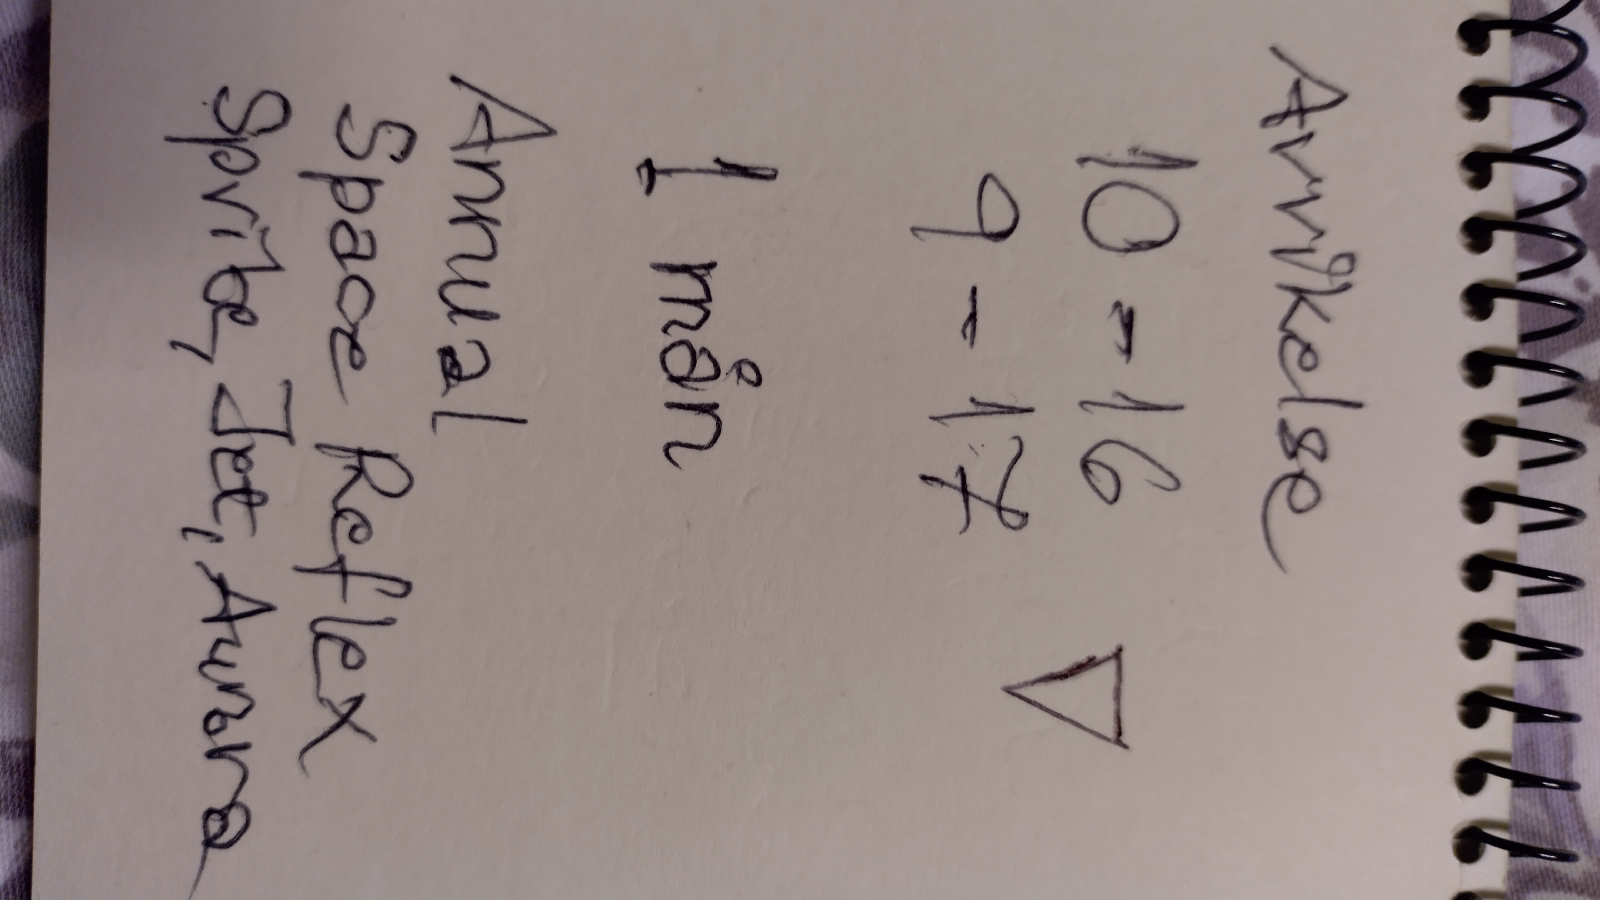 Avvikelse
10 - 16
9 - 17
1 mån
Annual
Space Reflex
Sprite, Jet, Aurora